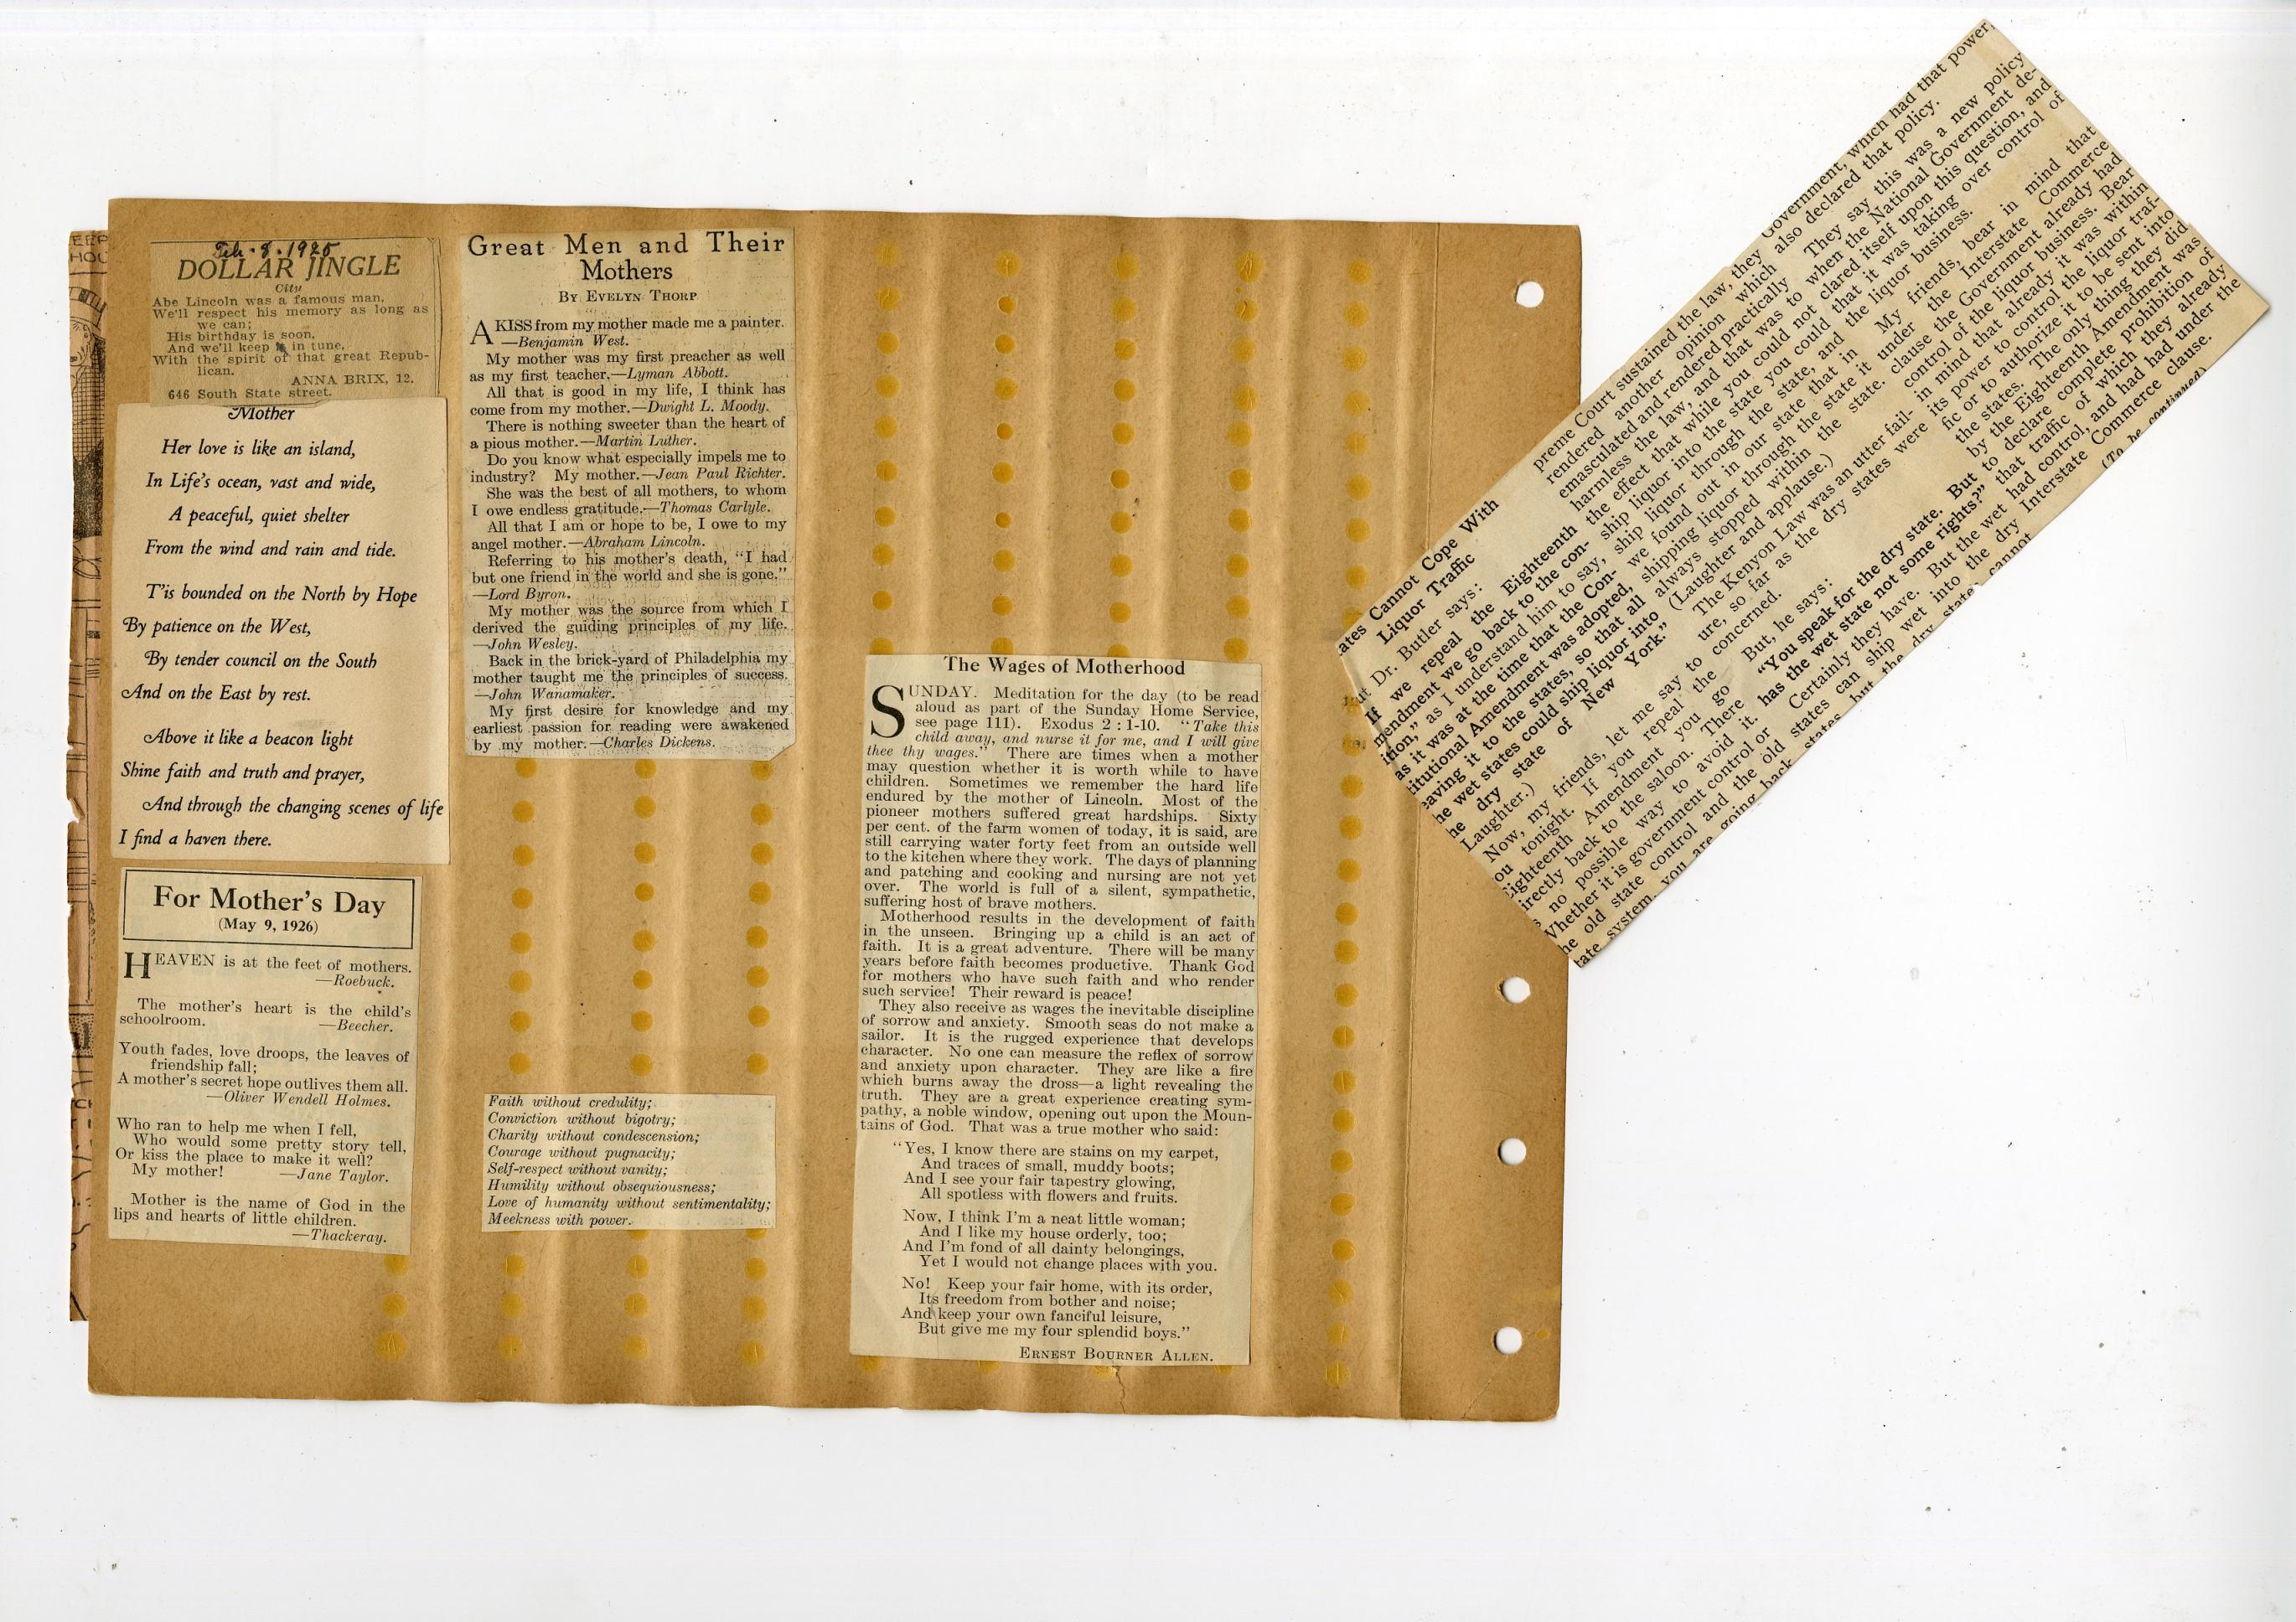 EEP
HOU
Feb. 8. 1925
DOLLAR JINGLE
City
Abe Lincoln was a famous man,
We'll respect his memory as long as
we can;
His birthday is soon,
And we'll keep in tune,
With the spirit of that great Repub-
lican.
ANNA BRIX, 12.
646 South State street.
Mother
Her love is like an island,
In Life's ocean, vast and wide,
A peaceful, quiet shelter
From the wind and rain and tide.
T'is bounded on the North by Hope
By patience on the West,
By tender council on the South
And on the East by rest.
Above it like a beacon light
Shine faith and truth and prayer,
And through the changing scenes of life
I find a haven there.
For Mother's Day
(May 9, 1926)
HEAVEN is at the feet of mothers.
—Roebuck.
The mother's heart is the child's
schoolroom. —Beecher.
Youth fades, love droops, the leaves of
friendship fall;
A mother's secret hope outlives them all.
—Oliver Wendell Holmes.
Who ran to help me when I fell,
Who would some pretty story tell,
Or kiss the place to make it well?
My mother! —Jane Taylor.
Mother is the name of God in the
lips and hearts of little children.
—Thackeray.
Great Men and Their
Mothers
By Evelyn Thorp
A KISS from my mother made me a painter.
—Benjamin West.
My mother was my first preacher as well
as my first teacher.—Lyman Abbott.
All that is good in my life, I think has
come from my mother.—Dwight L. Moody.
There is nothing sweeter than the heart of
a pious mother.—Martin Luther.
Do you know what especially impels me to
industry? My mother.—Jean Paul Richter.
She was the best of all mothers, to whom
I owe endless gratitude.—Thomas Carlyle.
All that I am or hope to be, I owe to my
angel mother.—Abraham Lincoln.
Referring to his mother's death, "I had
but one friend in the world and she is gone."
—Lord Byron.
My mother was the source from which I
derived the guiding principles of my life.
—John Wesley.
Back in the brick-yard of Philadelphia my
mother taught me the principles of success.
—John Wanamaker.
My first desire for knowledge and my
earliest passion for reading were awakened
by my mother.—Charles Dickens.
Faith without credulity;
Conviction without bigotry;
Charity without condescension;
Courage without pugnacity;
Self-respect without vanity;
Humility without obsequiousness;
Love of humanity without sentimentality;
Meekness with power.
The Wages of Motherhood
SUNDAY. Meditation for the day (to be read
aloud as part of the Sunday Home Service,
see page 111). Exodus 2 : 1-10. "Take this
child away, and nurse it for me, and I will give
thee thy wages." There are times when a mother
may question whether it is worth while to have
children. Sometimes we remember the hard life
endured by the mother of Lincoln. Most of the
pioneer mothers suffered great hardships. Sixty
per cent. of the farm women of today, it is said, are
still carrying water forty feet from an outside well
to the kitchen where they work. The days of planning
and patching and cooking and nursing are not yet
over. The world is full of a silent, sympathetic,
suffering host of brave mothers.
Motherhood results in the development of faith
in the unseen. Bringing up a child is an act of
faith. It is a great adventure. There will be many
years before faith becomes productive. Thank God
for mothers who have such faith and who render
such service! Their reward is peace!
They also receive as wages the inevitable discipline
of sorrow and anxiety. Smooth seas do not make a
sailor. It is the rugged experience that develops
character. No one can measure the reflex of sorrow
and anxiety upon character. They are like a fire
which burns away the dross—a light revealing the
truth. They are a great experience creating sym-
pathy, a noble window, opening out upon the Moun-
tains of God. That was a true mother who said:
"Yes, I know there are stains on my carpet,
And traces of small, muddy boots;
And I see your fair tapestry glowing,
All spotless with flowers and fruits.
Now, I think I'm a neat little woman;
And I like my house orderly, too;
And I'm fond of all dainty belongings,
Yet I would not change places with you.
No! Keep your fair home, with its order,
Its freedom from bother and noise;
And keep your own fanciful leisure,
But give me my four splendid boys."
Ernest Bourner Allen.
ates Cannot Cope With
Liquor Traffic
ut Dr. Butler says:
"If we repeal the Eighteenth
mendment we go back to the con-
ition," as I understand him to say,
"as it was at the time that the Con-
titutional Amendment was adopted,
eaving it to the states, so that all
he wet states could ship liquor into
he dry state of New York."
Laughter.)
Now, my friends, let me say to
ou tonight. If you repeal the
Eighteenth Amendment you go
irectly back to the saloon. There
s no possible way to avoid it.
Whether it is government control or
he old state control and the old
tate system, you are going back
preme Court sustained the law, they
rendered another opinion which
emasculated and rendered practically
harmless the law, and that was to
the effect that while you could not
ship liquor into the state you could
ship liquor through the state, and
we found out in our state that in
shipping liquor through the state it
always stopped within the state.
(Laughter and applause.)
The Kenyon Law was an utter fail-
ure, so far as the dry states were
concerned.
But, he says:
"You speak for the dry state. But
has the wet state not some rights?"
Certainly they have. But the wet
states can ship wet into the dry
states, but the dry state cannot
Government, which had that power,
also declared that policy.
They say this was a new policy
when the National Government de-
clared itself upon this question, and
that it was taking over control of
the liquor business.
My friends, bear in mind that
under the Interstate Commerce
clause the Government already had
control of the liquor business. Bear
in mind that already it was within
its power to control the liquor traf-
fic or to authorize it to be sent into
the states. The only thing they did
by the Eighteenth Amendment was
to declare complete prohibition of
that traffic of which they already
had control, and had had under the
Interstate Commerce clause.
(To be continued)